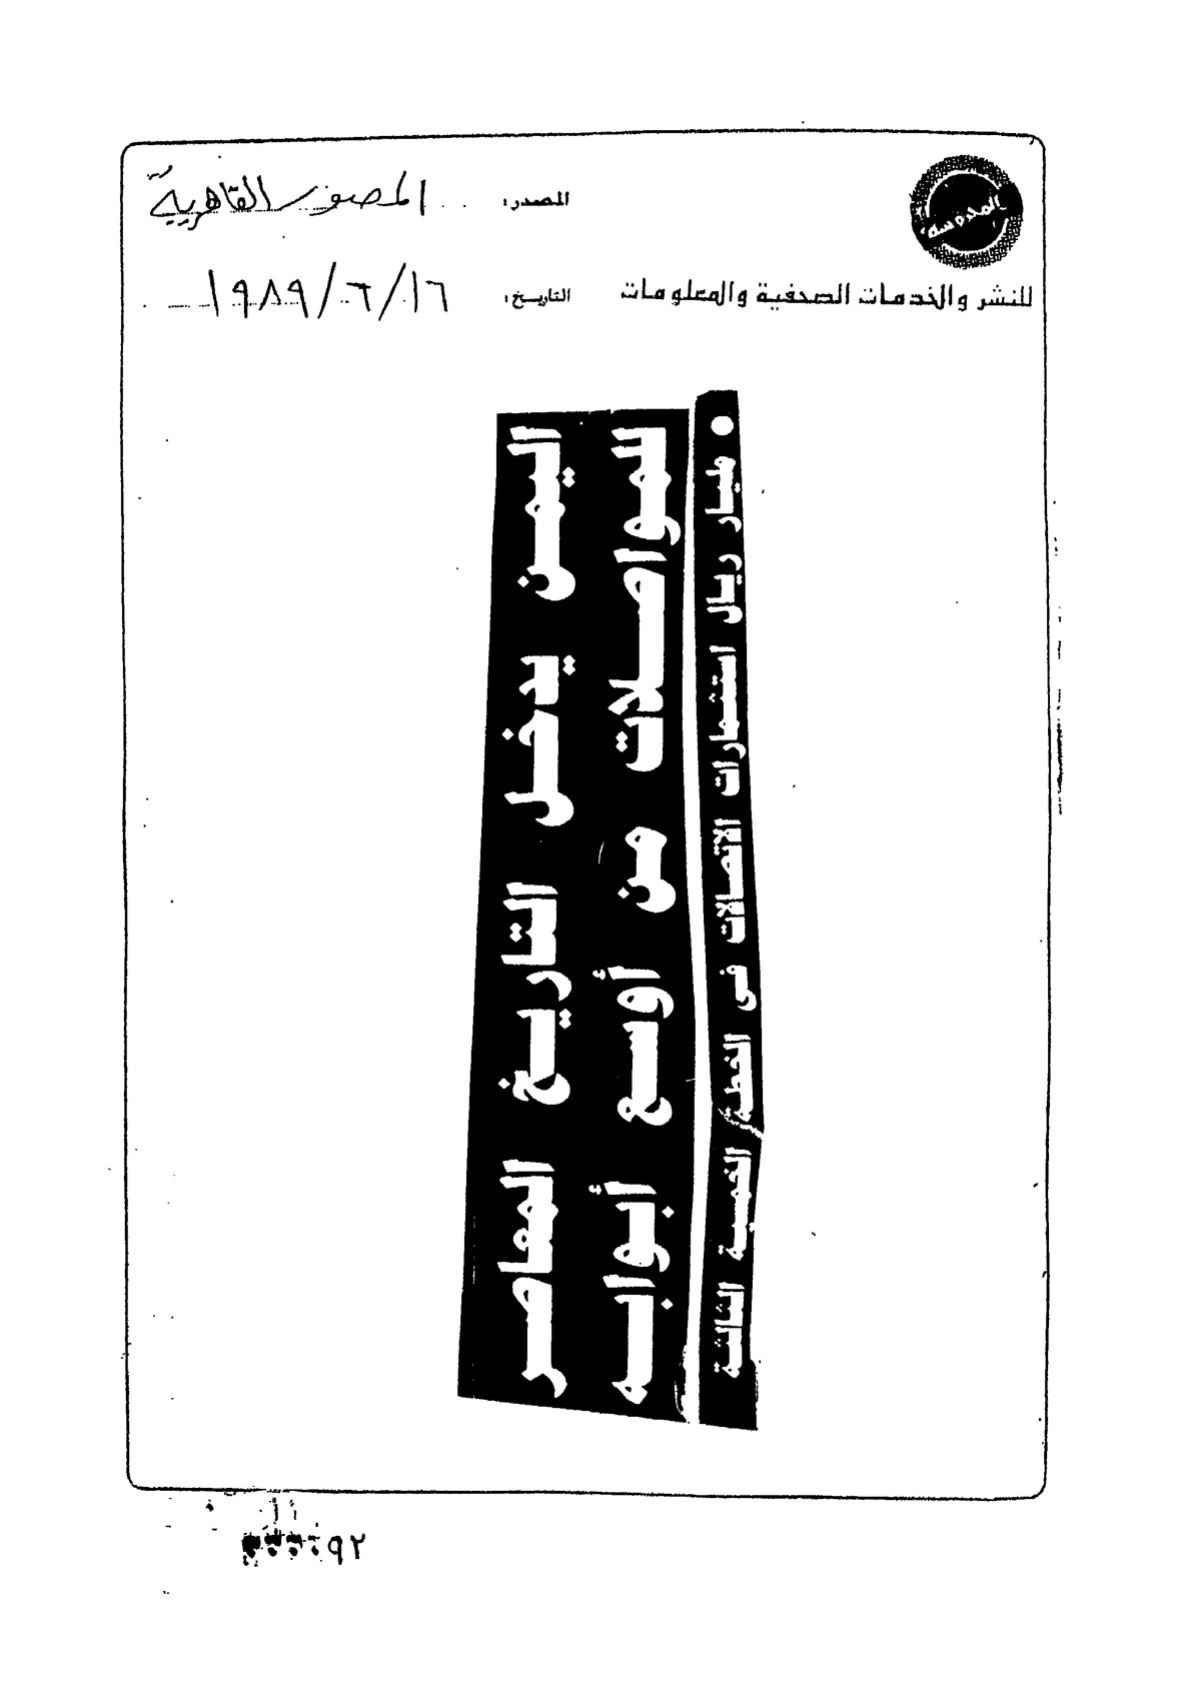 المحروسة
المصدر: المصور القاهرية
للنشر والخدمات الصحفية والمعلومات
التاريخ: ١٩٨٩/٦/١٦
اليمن يدخل التاريخ المعاصر
المواصلات من أوسع أبوابه
● مليار ريال استثمارات الاتصالات فى الخطة الخمسية الثالثة